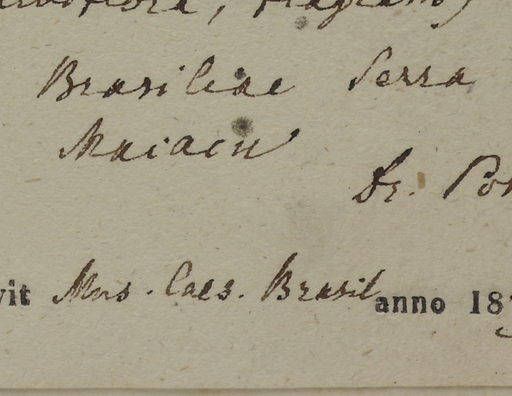 Brasiliae Serra
Macacu
Dr. Po
vit Mus. Caes. Brasil anno 18